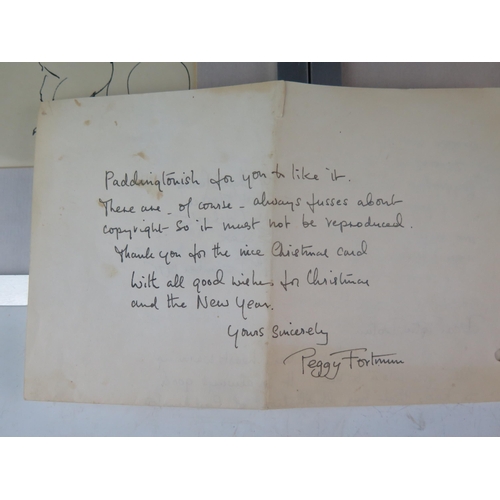 Paddingtonish for you to like it.
There are - of course - always fusses about
copyright - so it must not be reproduced.
Thank you for the nice Christmas card
With all good wishes for Christmas
and the New Year.
Yours sincerely
Peggy Fortnum